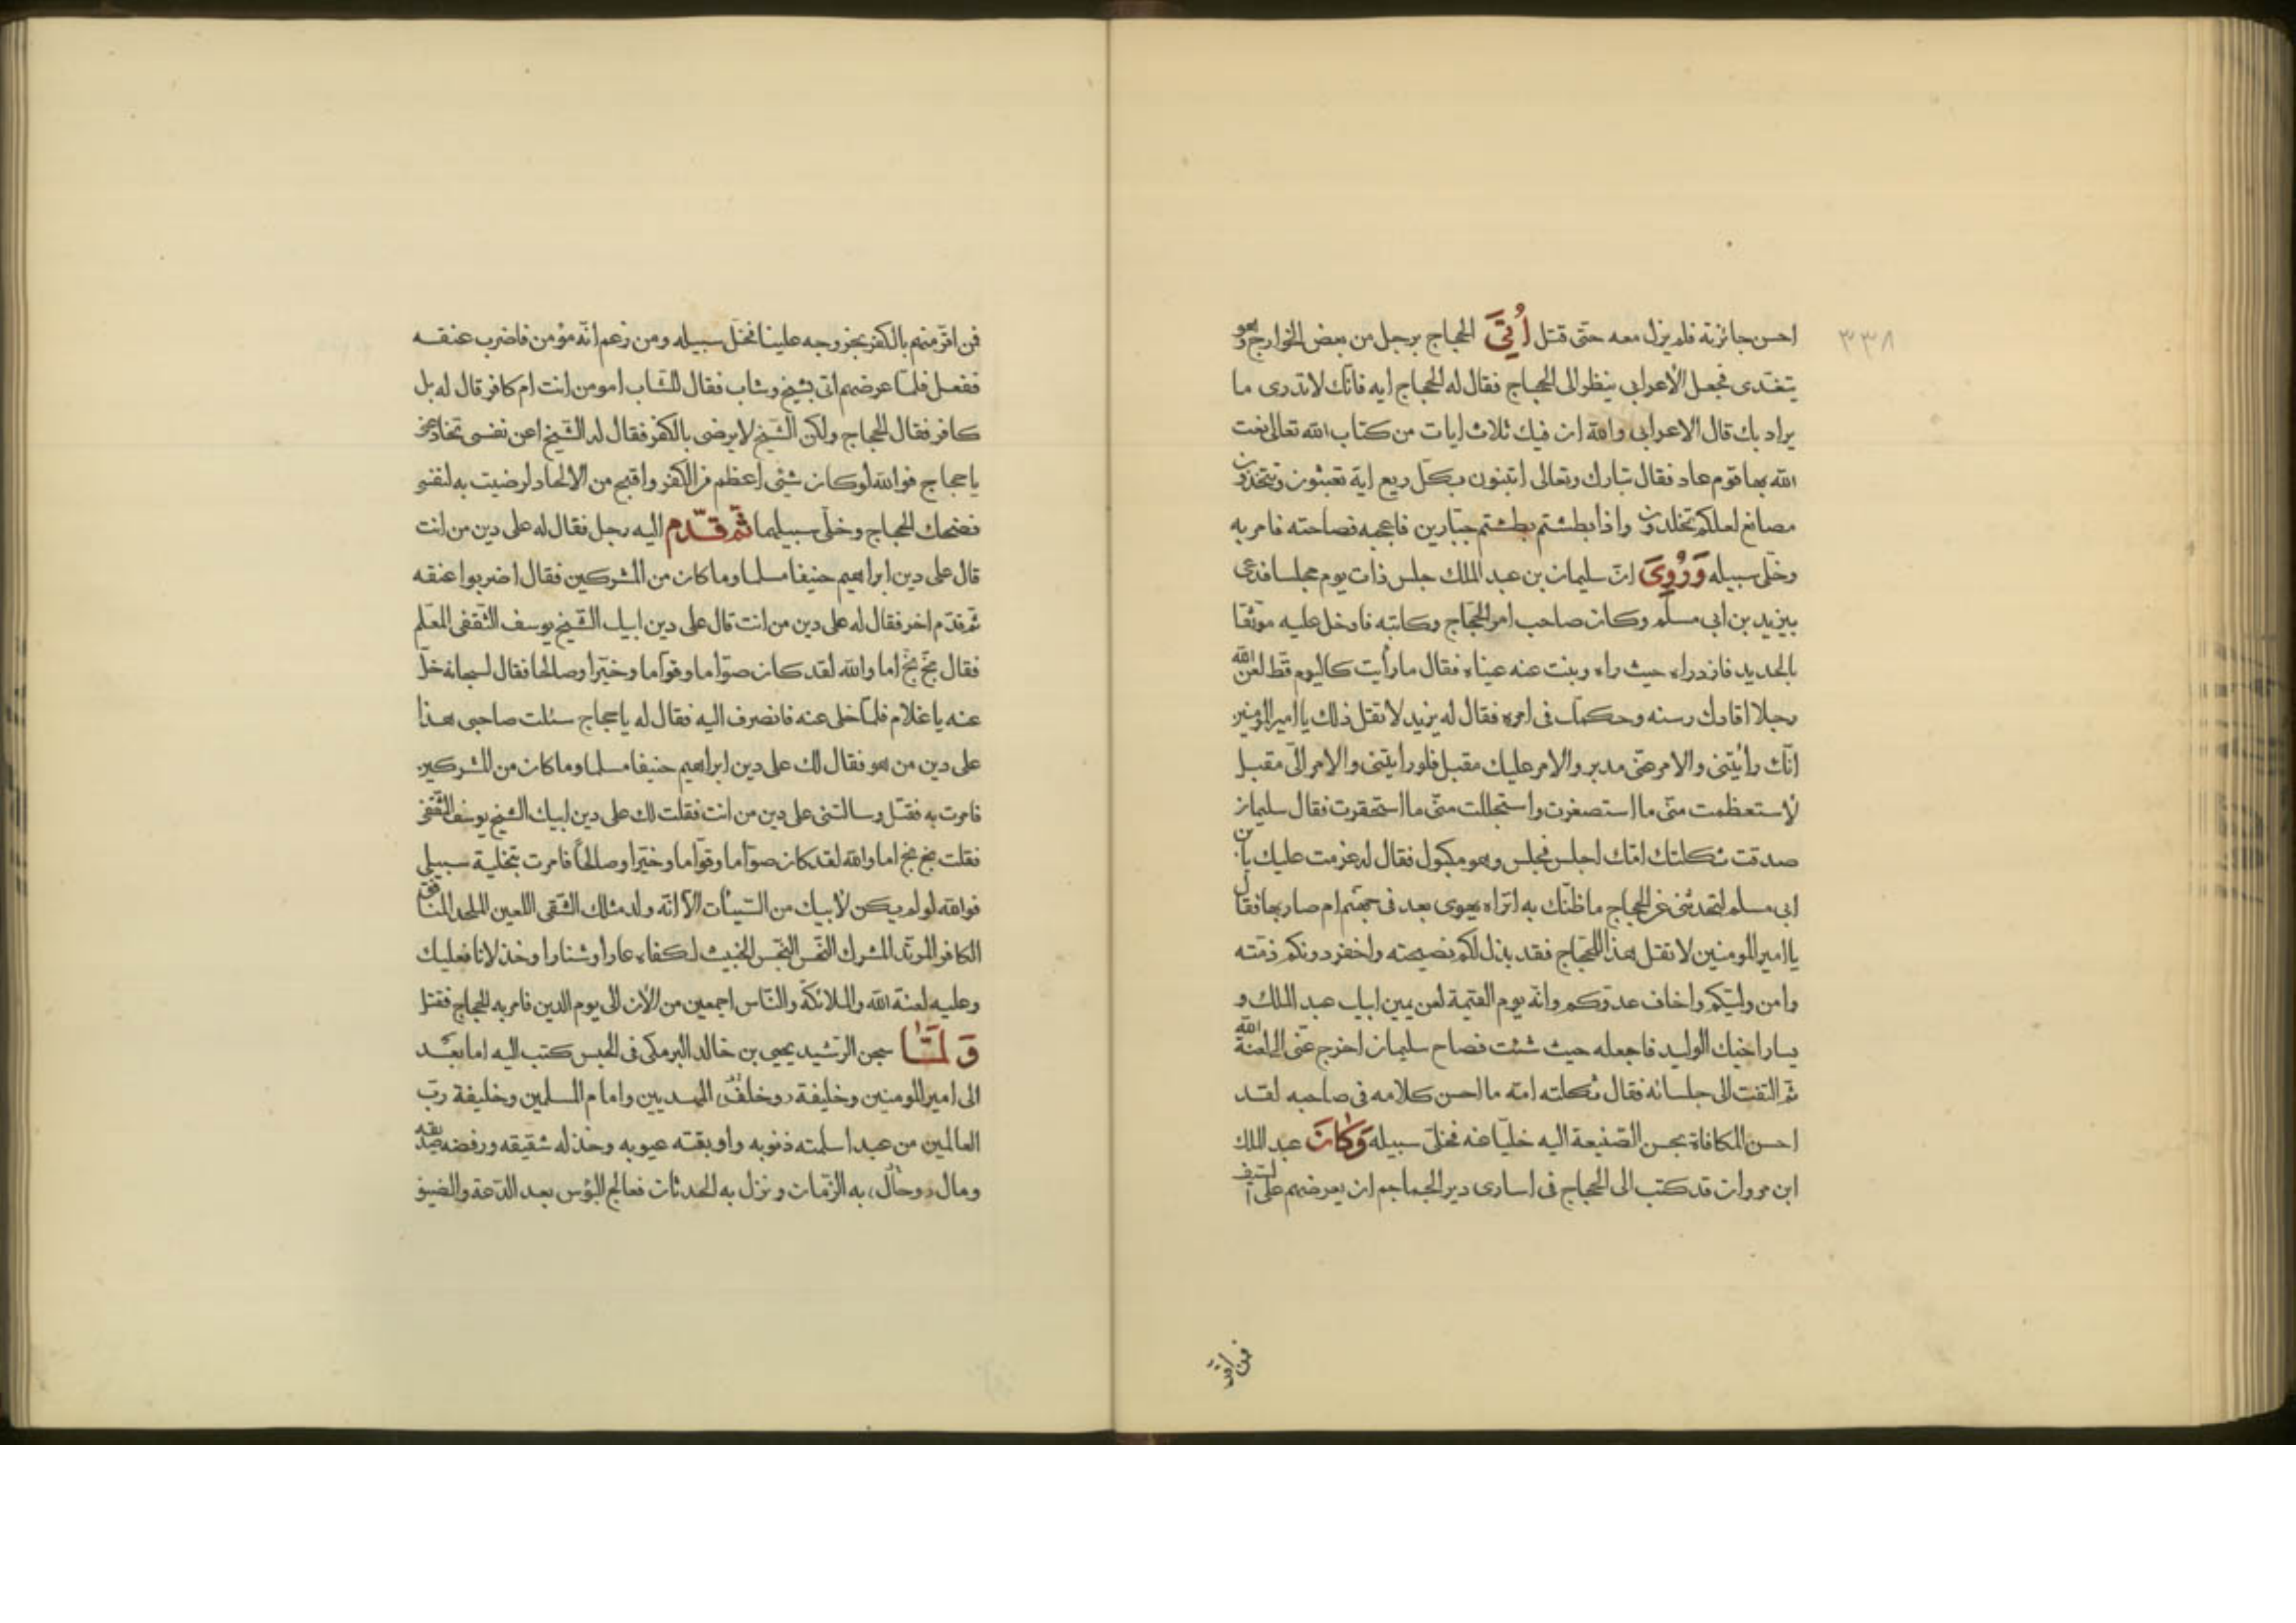 ٣٣٨
احسن جائزته فلم يزل معه حتى قتل اُتِىَ الحجاج برجل من بعض الخوارج وهو
يتغدى فجعل الاعرابى ينظر الى الحجاج فقال له الحجاج ايه فانك لاتدرى ما
يراد بك قال الاعرابى والله ان فيك ثلاث ايات من كتاب الله تعالى نعت
الله بها قوم عاد فقال تبارك وتعالى اتبنون بكل ريع اية تعبثون وتتخذون
مصانع لعلكم تخلدون واذا بطشتم بطشتم جبّارين فاعجبه فصاحته فامر به
وخلّى سبيله وَرُوِىَ انّ سليمان بن عبد الملك جلس ذات يوم مجلسا فدعى
بيزيد بن ابى مسلم وكان صاحب امر الحجّاج وكاتبه فادخل عليه موثقا
بالحديد فازدراه حيث راه ونبت عنه عيناه فقال مارأيت كاليوم قط لعن الله
رجلا اقادك رسنه وحكمك فى امره فقال له يزيد لاتقل ذلك يا امير المؤمنين
انّك رأيتنى والامر عنّى مدبر والامر عليك مقبل فلو رايتنى والامر الىّ مقبل
لاستعظمت منّى ما استصغرت واستجللت منّى ما استحقرت فقال سليمان
صدقت ثكلتك امّك اجلس فجلس وهو مكبول فقال له عزمت عليك يابن
ابى مسلم لتحدثنى عن الحجاج ماظنّك به اتراه يهوى بعد فى جهنّم ام صار بها فقال
يا امير المومنين لاتقل هذا للحجّاج فقد بذل لكم نصيحته واخفر دونكم ذمّته
وامن وليّكم واخاف عدوّكم وانّه يوم القيمة لعن يمين ابيك عبد الملك و
يسار اخيك الوليد فاجعله حيث شئت فصاح سليمان اخرج عنّى الى لعنة الله
ثمّ التفت الى جلسائه فقال ثكلته امّه ما احسن كلامه فى صاحبه لقد
احسن المكافاة بحسن الصّنيعة اليه خليا عنه فخلّى سبيله وَكَانَ عبد الملك
ابن مروان قد كتب الى الحجاج فى اسارى دير الجماجم ان يعرضهم على السّيف
فمن اقرّ
فمن اقرّ منهم بالكفر بخروجه علينا فخلّ سبيله ومن زعم انّه مؤمن فاضرب عنقه
ففعل فلمّا عرضهم اتى بشيخ وشاب فقال للشّاب امومن انت ام كافر قال له بل
كافر فقال الحجاج ولكن الشّيخ لايرضى بالكفر فقال له الشّيخ اعن نفسى تخادعنى
ياحجاج فوالله لو كان شيئى اعظم من الكفر واقبح من الالحاد لرضيت به لنفسى
فضحك الحجاج وخلّى سبيلهما ثمّ قدّم اليه رجل فقال له على دين من انت
قال على دين ابراهيم حنيفا مسلما وماكان من المشركين فقال اضربوا عنقه
ثمّ قدّم اخر فقال له على دين من انت قال على دين ابيك الشّيخ يوسف الثّقفى المعلّم
فقال بخّ بخّ اما والله لقد كان صوّاما وقوّاما وخيّرا وصالحا فقال لسجانه خلّ
عنه ياغلام فلمّا خلى عنه فانصرف اليه فقال له ياحجاج سئلت صاحبى هذا
على دين من هو فقال لك على دين ابراهيم حنيفا مسلما وماكان من المشركين
فامرت به فقتل وسالتنى على دين من انت فقلت لك على دين ابيك الشيخ يوسف الثّقفى
فقلت بخ بخ اما والله لقد كان صوّاما وقوّاما وخيّرا وصالحاً فامرت بتخلية سبيلى
فوالله لو لم يكن لابيك من السّيئات الاّ انّه ولد مثلك الشّقى اللعين الملحد المنافق
الكافر المرتدّ المشرك النّحس النّجس الخبيث لكفاه عارا وشنارا وخذلانا فعليك
وعليه لعنة الله والملائكة والنّاس اجمعين من الان الى يوم الدين فامر به الحجاج فقتل
وَلَمَّا سجن الرّشيد يحيى بن خالد البرمكى فى الحبس كتب اليه اما بعد
الى امير المومنين وخليفة وخلف المهديين وامام المسلمين وخليفة ربّ
العالمين من عبد اسلمته ذنوبه واوبقته عيوبه وخذله شقيقه ورفضه صديقه
ومال وحال به الزّمان ونزل به الحدثان فعالج البؤس بعد الدّعة والضيق